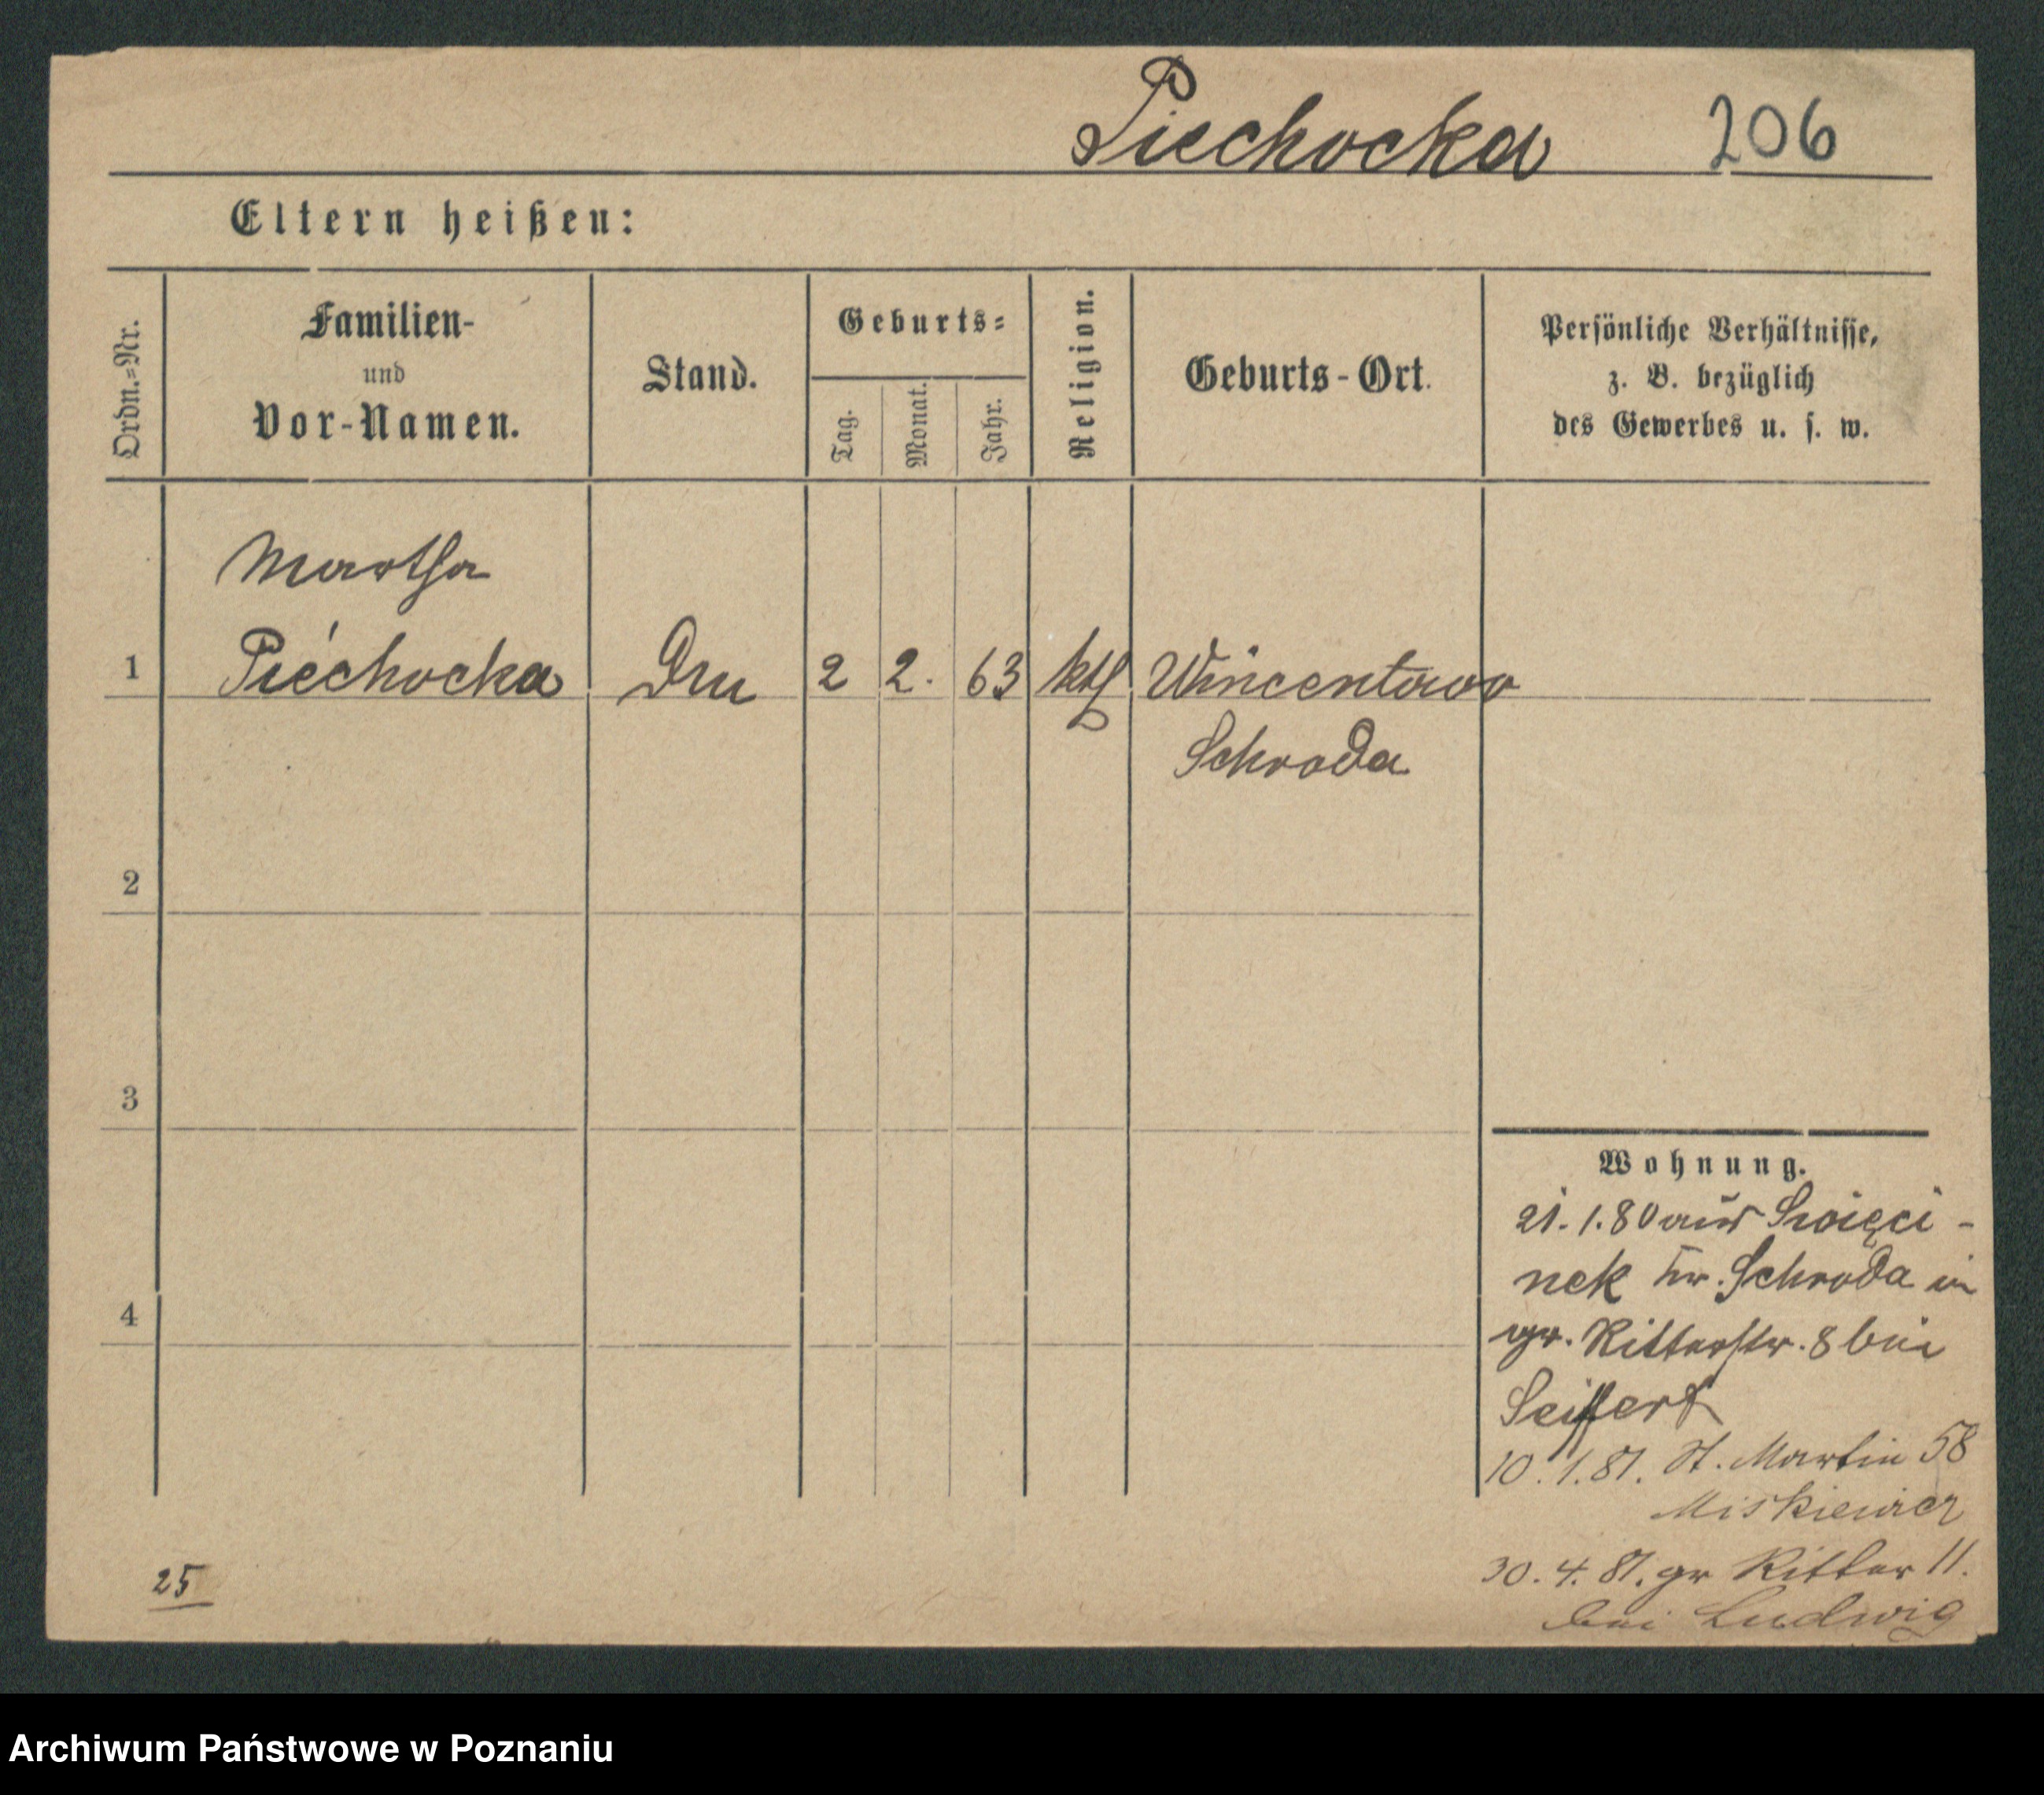 Piechocka 206
Eltern heißen:
Ordn.=Nr.
Familien-
und
Vor-Namen.
Stand.
Geburts=
Tag.
Monat.
Jahr.
Religion.
Geburts-Ort.
Persönliche Verhältnisse,
z. B. bezüglich
des Gewerbes u. s. w.
Martha
1 Piechocka 2 2. 63 kth Wincentowo
Schroda
2
3
4
Wohnung.
21.1.80 aus Swięci-
nek Kr. Schroda in
gr. Ritterstr. 8 bei
Seiffert
10.1.81. St. Martin 58
Miskiewicz
30.4.81. gr Ritter 11.
bei Ludwig
25
Archiwum Państwowe w Poznaniu